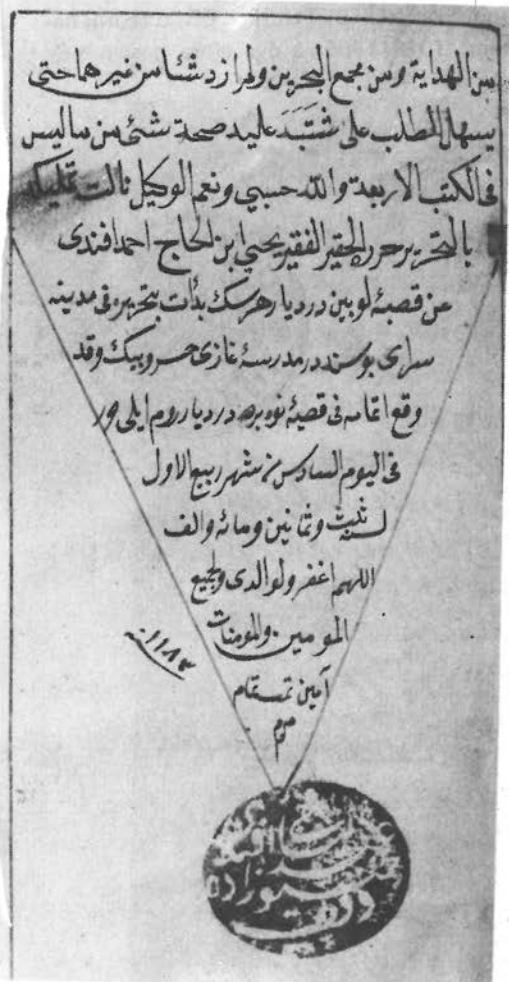 من الهداية ومن مجمع البحرين ولم ازد شئا من غيرهما حتى
يسهل الطلب على من عليه صحة شئ من ما ليس
فى الكتب الاربعة والله حسبي ونعم الوكيل نالت تمليكه
بالتحرير حرر الحقير الفقير يحيى ابن الحاج احمد افندى
عن قصبهٔ لوبين در ديار هرسك بدأت بتحريره فى مدينه
سراى بوسنه در مدرسهٔ غازى خسرو بيك وقد
وقع اتمامه فى قصبهٔ نوه بره در ديار روم ايلى
فى اليوم السادس من شهر ربيع الاول
لسنه ثلث وثمانين ومائه والف
اللهم اغفر ولوالدى ولجميع
المومنين والمومنات
سنه ١١٨٣
آمين تمت تمام
م